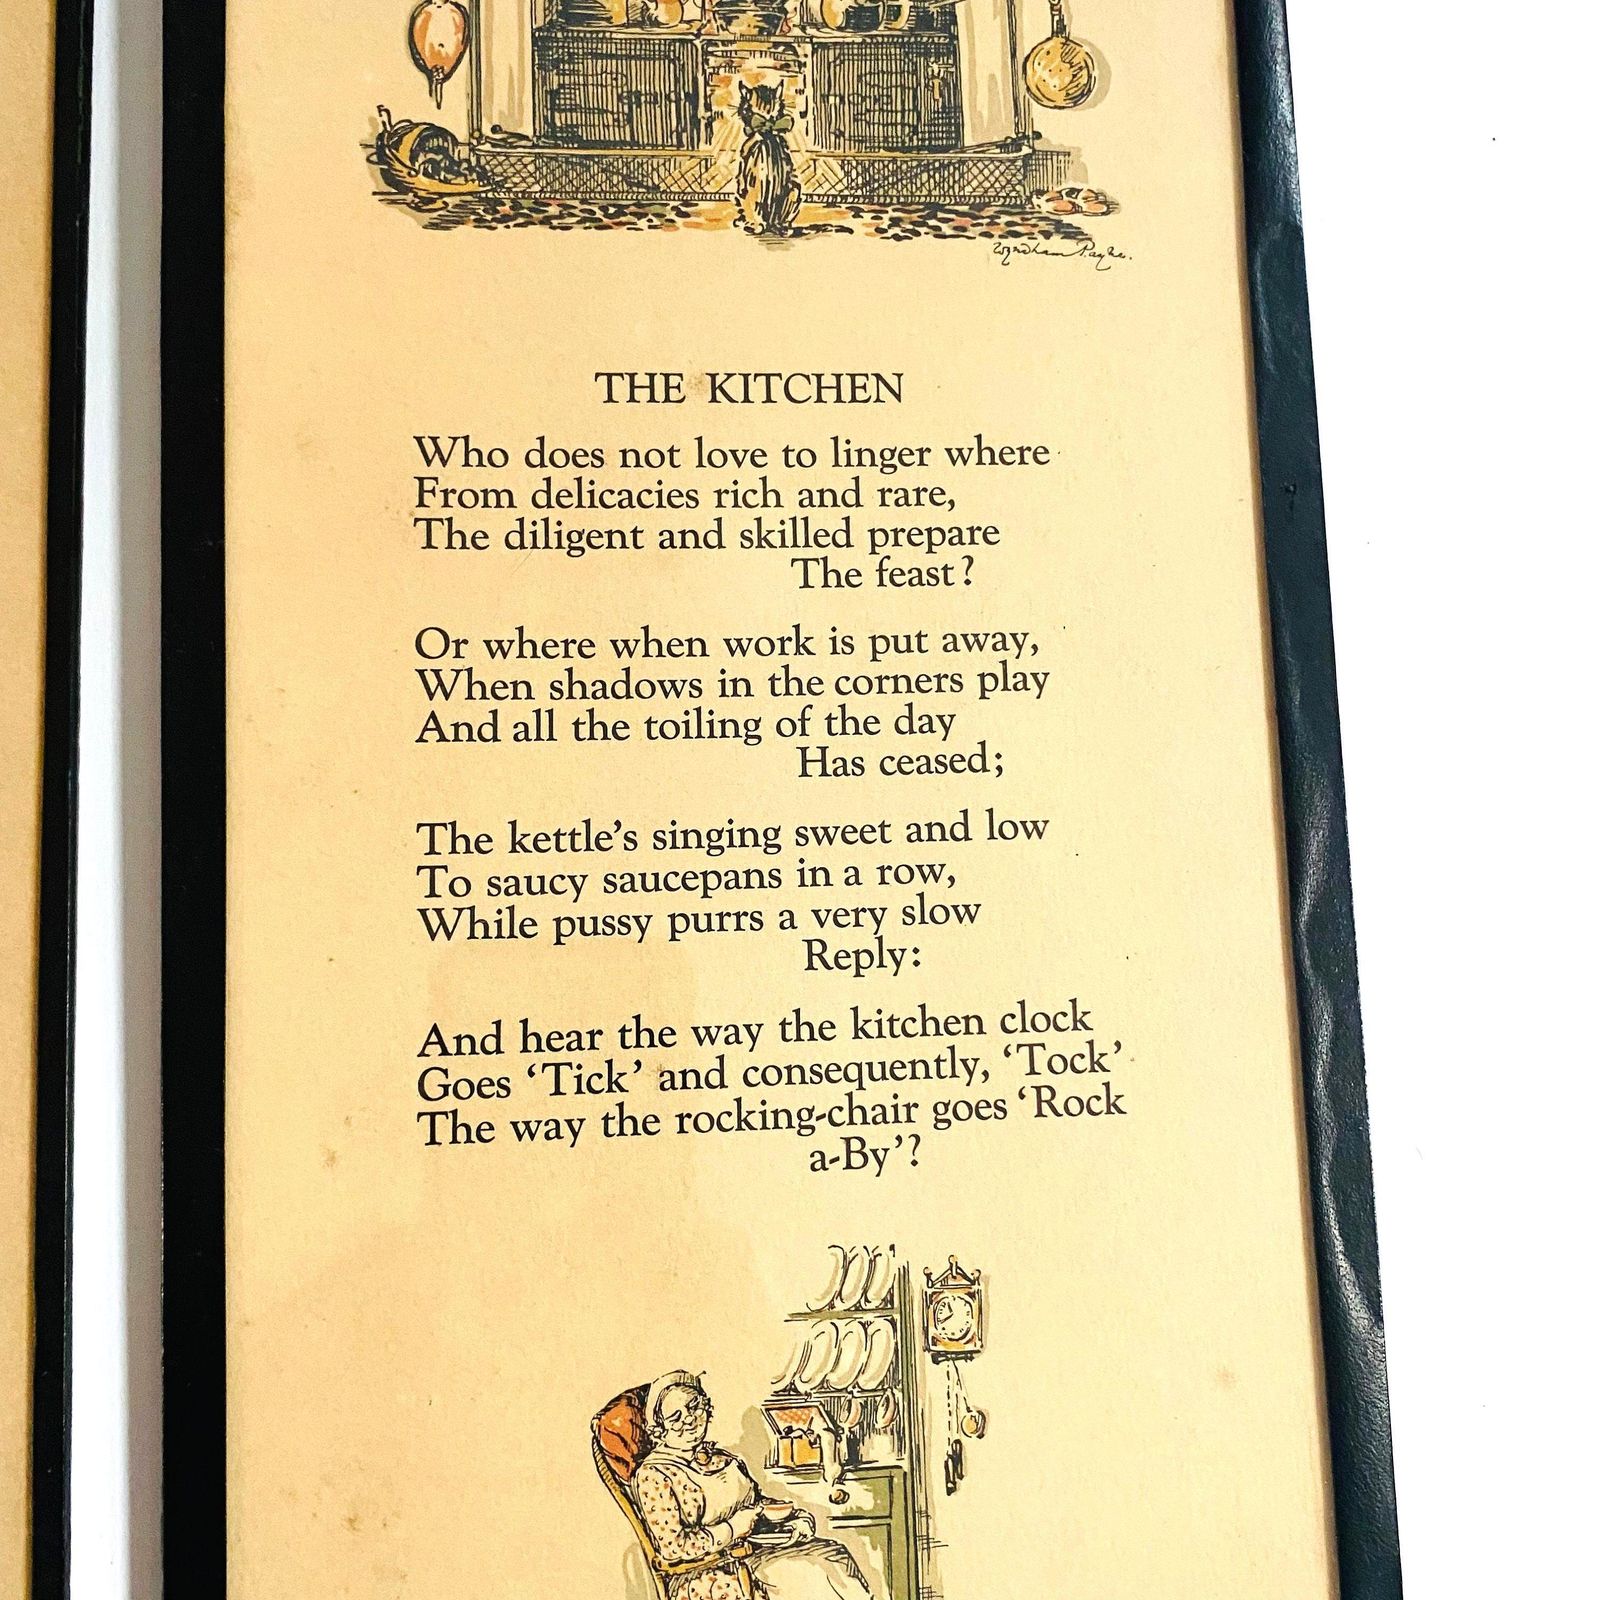 Wyndham Payne.
THE KITCHEN
Who does not love to linger where
From delicacies rich and rare,
The diligent and skilled prepare
The feast?
Or where when work is put away,
When shadows in the corners play
And all the toiling of the day
Has ceased;
The kettle’s singing sweet and low
To saucy saucepans in a row,
While pussy purrs a very slow
Reply:
And hear the way the kitchen clock
Goes ‘Tick’ and consequently, ‘Tock’
The way the rocking-chair goes ‘Rock
a-By’?